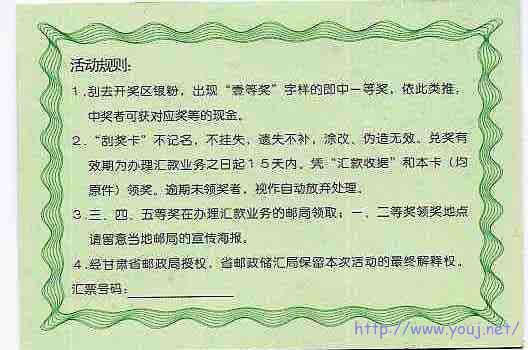 活动规则:
1.刮去开奖区银粉，出现“壹等奖”字样的即中一等奖，依此类推，
中奖者可获对应奖等的现金。
2.“刮奖卡”不记名，不挂失，遗失不补，涂改、伪造无效。兑奖有
效期为办理汇款业务之日起15天内。凭“汇款收据”和本卡（均
原件）领奖。逾期未领奖者，视作自动放弃处理。
3.三、四、五等奖在办理汇款业务的邮局领取；一、二等奖领奖地点
请留意当地邮局的宣传海报。
4.经甘肃省邮政局授权，省邮政储汇局保留本次活动的最终解释权。
汇票号码:
http://www.youj.net/